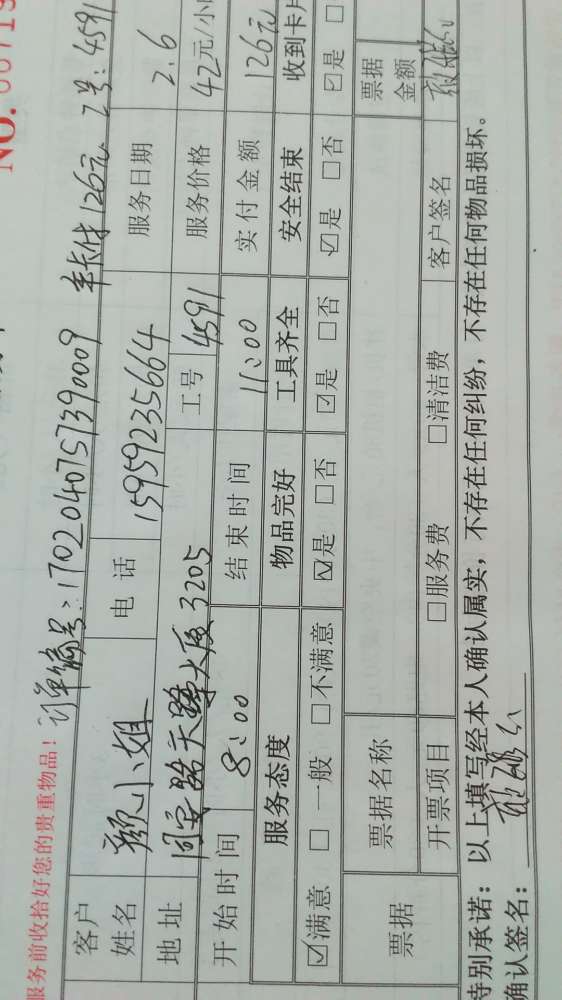 NO. 00719
服务前收拾好您的贵重物品！ 订单编号：1702040757390009 年卡付126元 工号：4591
客户姓名 颜小姐 电话 15959235664 服务日期 2.6
地址 同安路天骄大厦3205 工号 4591 服务价格 42元/小
开始时间 8:00 结束时间 11:00 实付金额 126元
服务态度 物品完好 工具齐全 安全结束 收到卡片
☑满意 □一般 □不满意 ☑是 □否 ☑是 □否 ☑是 □否 ☑是 □
票据 票据名称 票据金额
开票项目 □服务费 □清洁费 客户签名
特别承诺：以上填写经本人确认属实，不存在任何纠纷，不存在任何物品损坏。
确认签名：